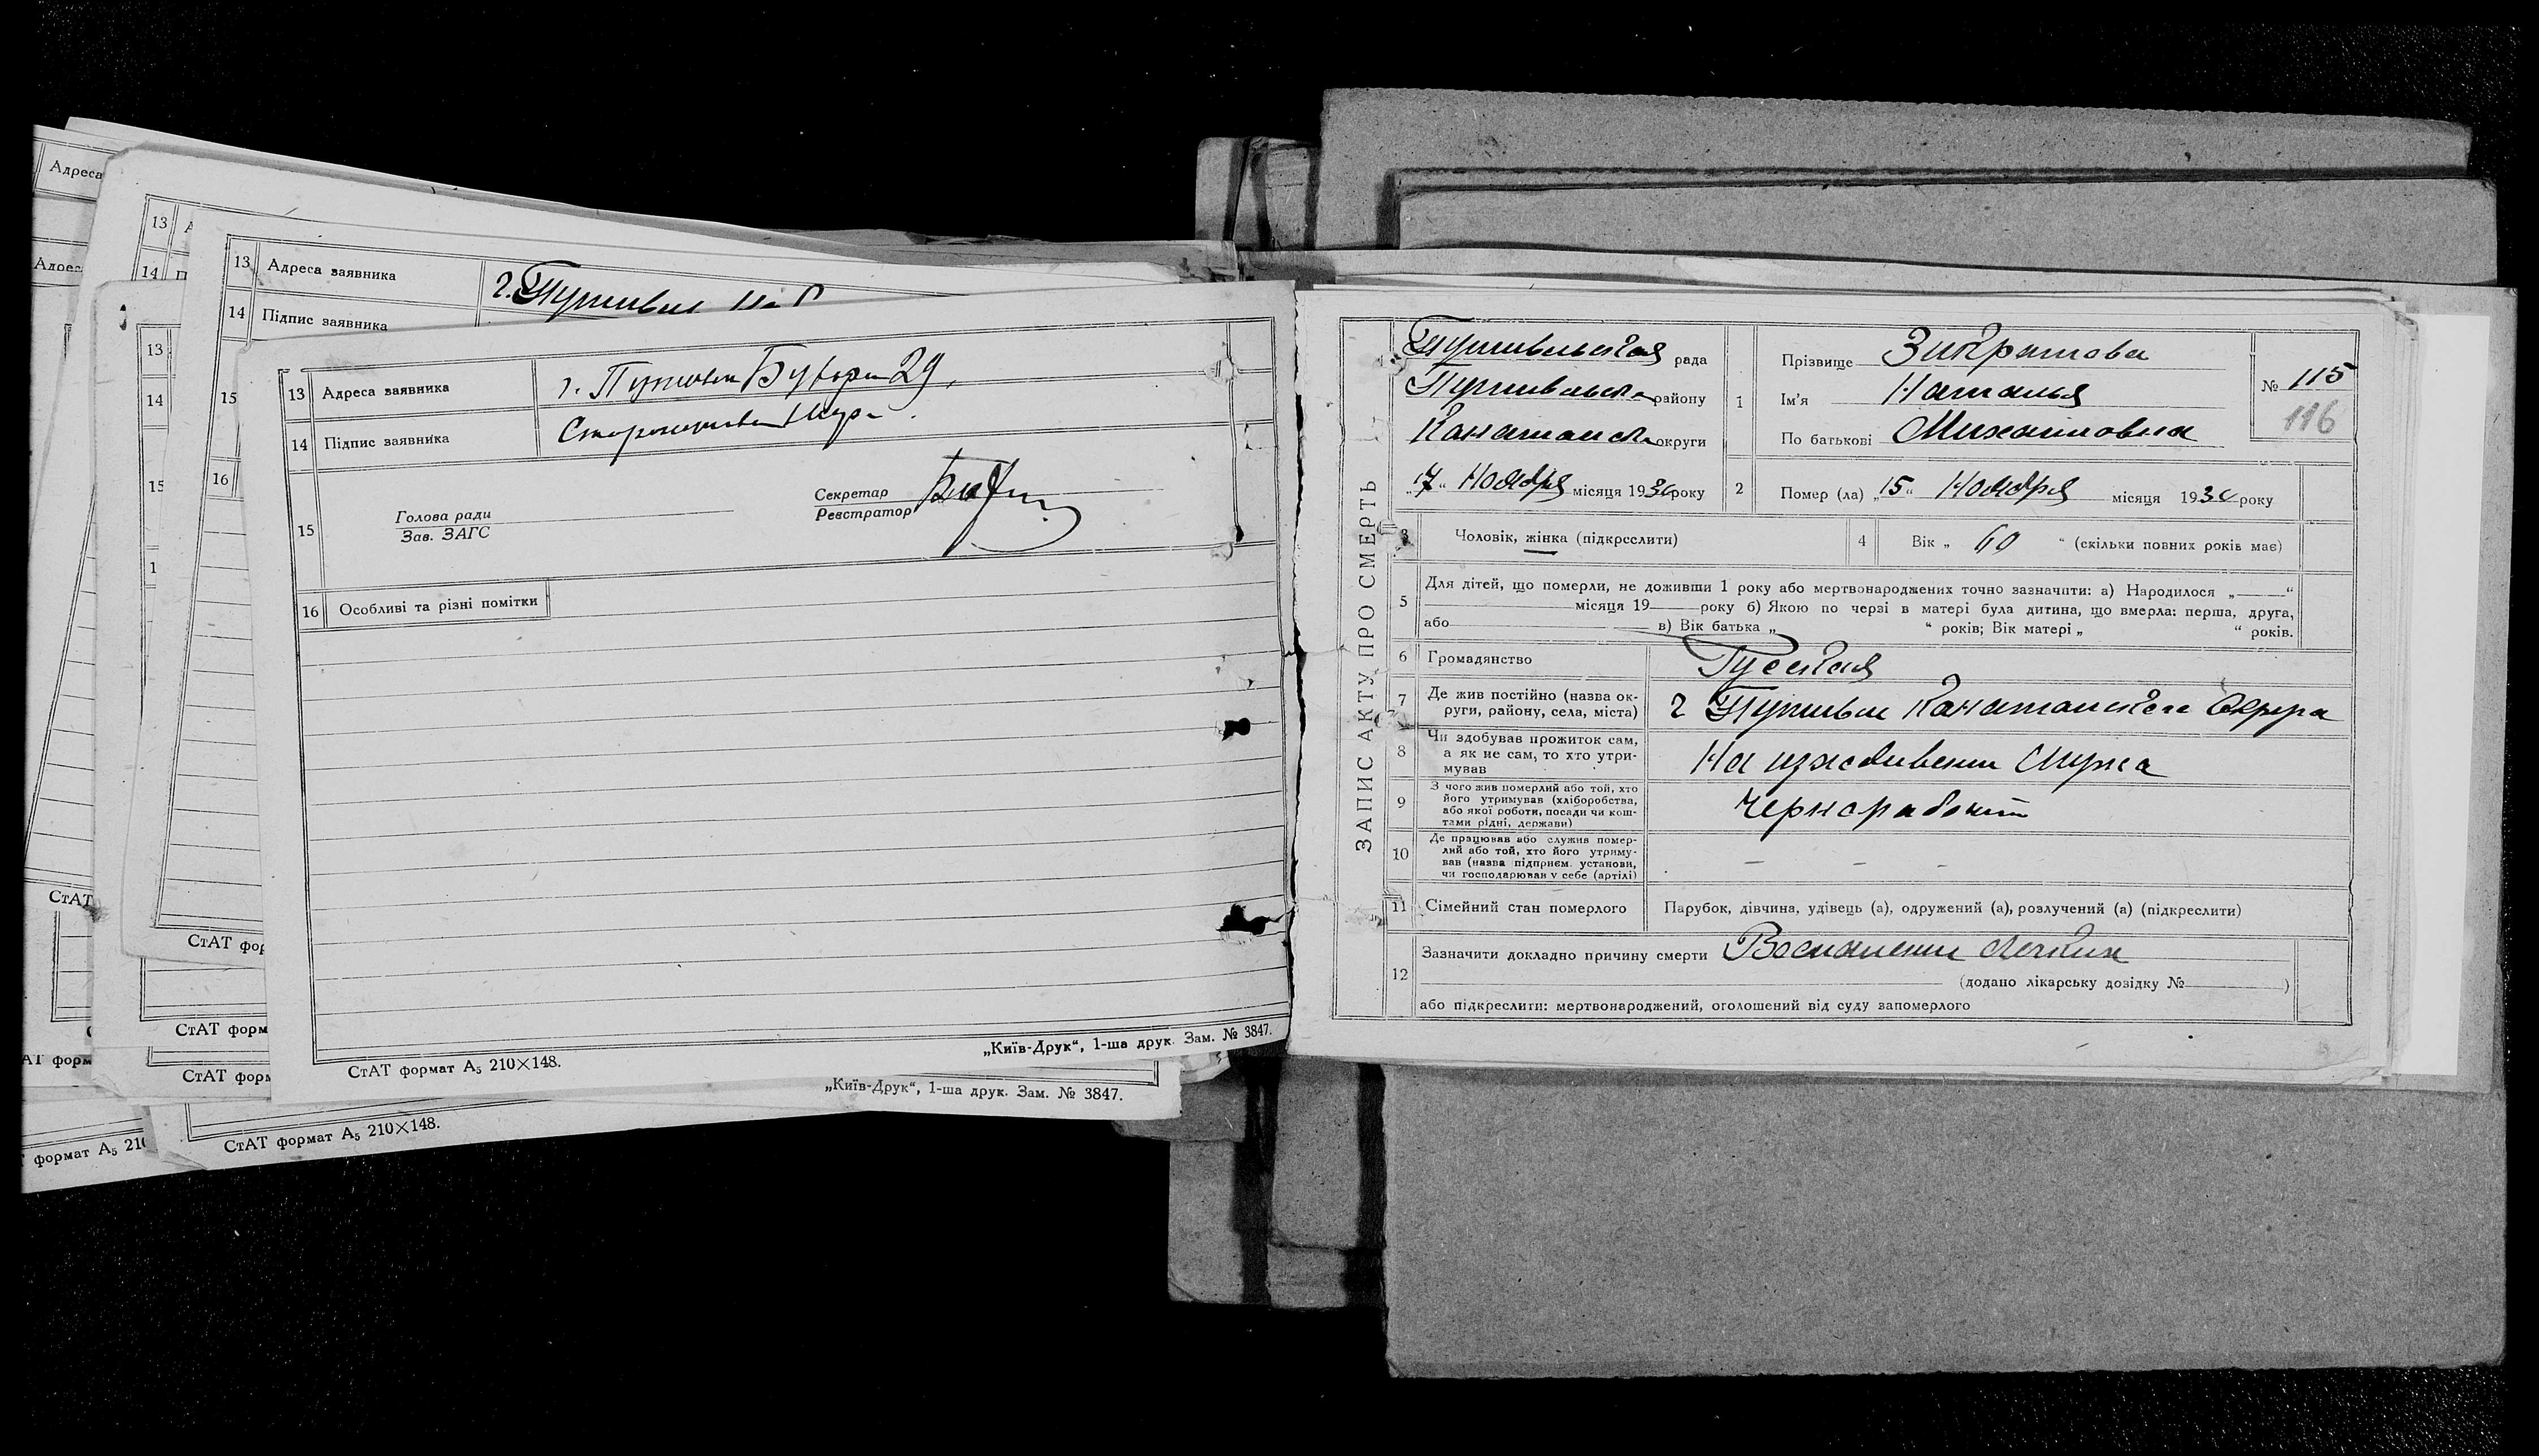 Адреса
13
14
Адрес
13 Адреса заявника г. Путивль
14 Підпис заявника
13
14
15
15
16
13 Адреса заявника г. Путивль 29,
14 Підпис заявника Шура
15 Голова ради
Зав. ЗАГС
Секретар
Реєстратор
16 Особливі та різні помітки
СтАТ формат А5 210×148.
„Київ-Друк“, 1-ша друк. Зам. № 3847.
„Київ-Друк“, 1-ша друк. Зам. № 3847.
СтАТ формат А5 210×148.
СтАТ
СтАТ фор
СтАТ форм
СтАТ форм
формат А5 210
ЗАПИС АКТУ ПРО СМЕРТЬ
Путивльская рада
Путивльск района району
округи
„17“ Ноября місяця 1930 року
1 Прізвище
Ім'я Наталья
По батькові Михайловна
№ 115
116
2 Помер (ла) „15“ Ноября місяця 1930 року
3 Чоловік, жінка (підкреслити)
4 Вік „ 60 “ (скільки повних років має)
5 Для дітей, що померли, не доживши 1 року або мертвонароджених точно зазначити: а) Народилося „ “
місяця 19 року б) Якою по черзі в матері була дитина, що вмерла: перша, друга,
або в) Вік батька „ “ років; Вік матері „ “ років.
6 Громадянство Русская
7 Де жив постійно (назва ок-
руги, району, села, міста) г Путивль Конотопского Округа
8 Чи здобував прожиток сам,
а як не сам, то хто утри-
мував На иждивении Мужа
9 З чого жив померлий або той, хто
його утримував (хліборобства,
або якої роботи, посади чи кош-
тами рідні, держави) Чернорабочий
10 Де працював або служив помер-
лий або той, хто його утриму-
вав (назва підприєм. установи,
чи господарював у себе (артілі) – – –
11 Сімейний стан померлого Парубок, дівчина, удівець (а), одружений (а), розлучений (а) (підкреслити)
12 Зазначити докладно причину смерти Воспаление легких
(додано лікарську довідку № )
або підкреслити: мертвонароджений, оголошений від суду запомерлого